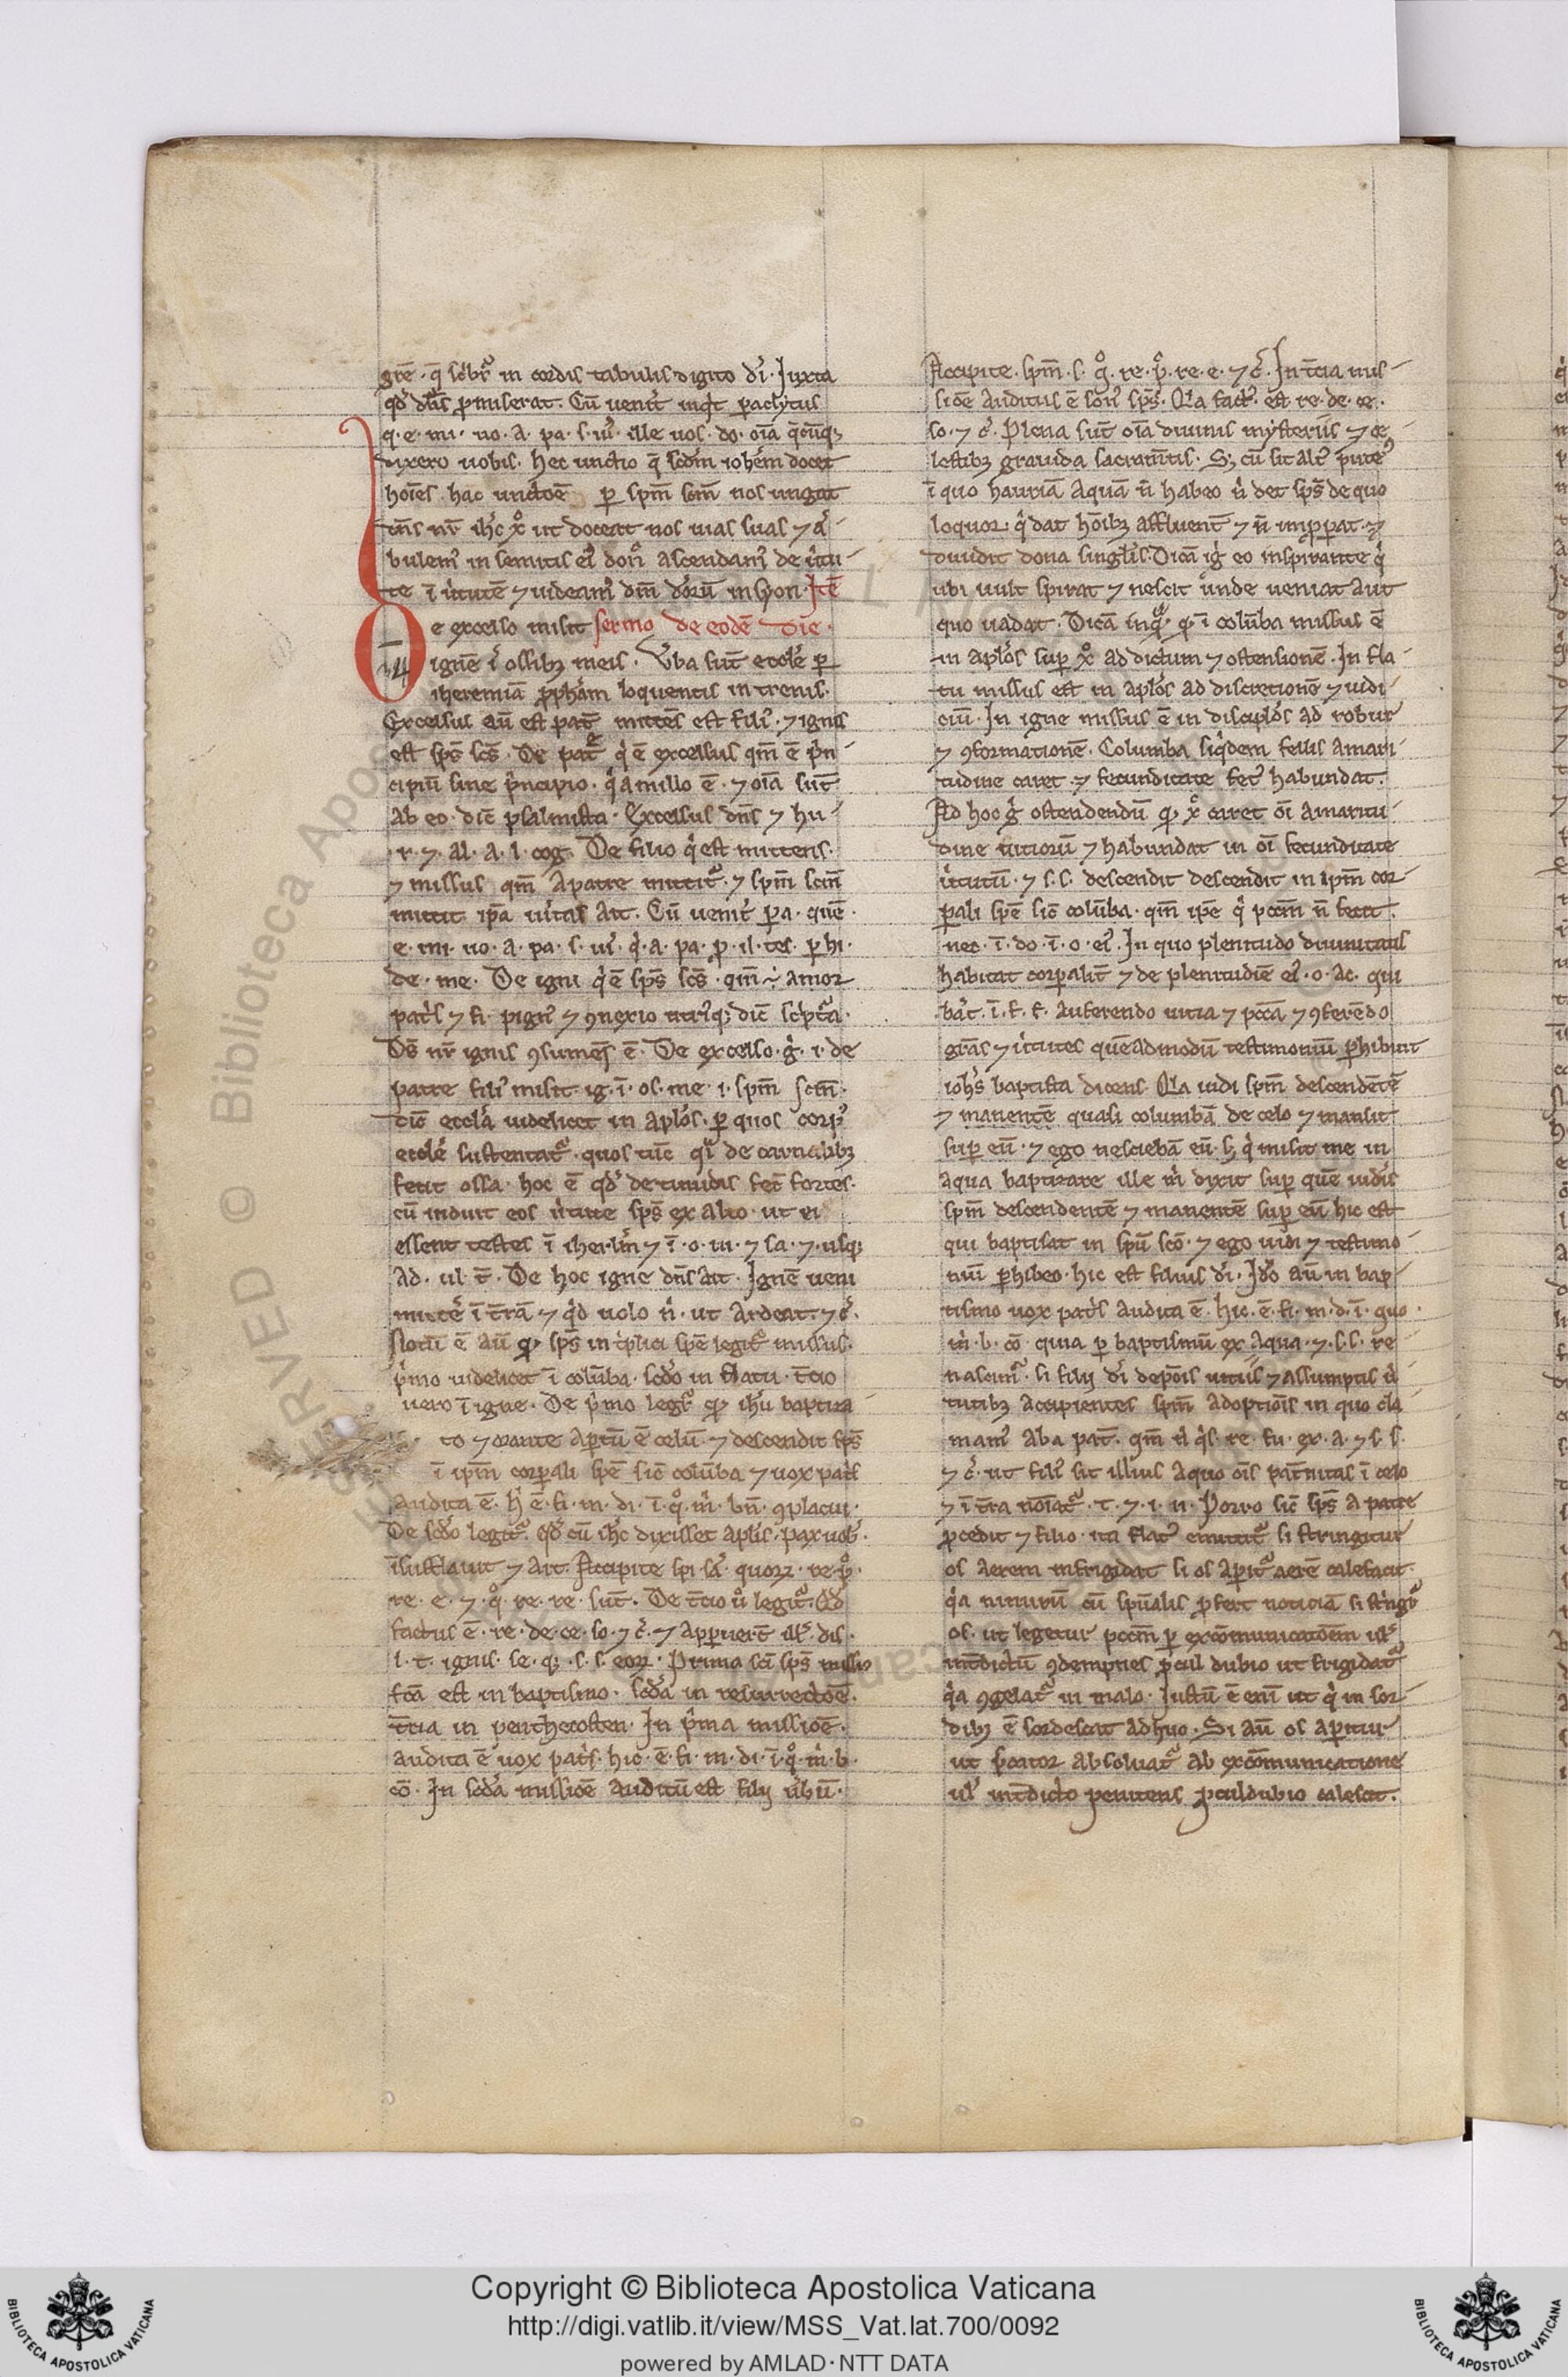 grē · q̄ scbr̄ in cordis tabulis digito dī · Juxta
qđ dn̄s ꝓmiserat. Cū uenīt inq̇t paclytus
q · e · mi · uo · a · pa · s · uī · ille uos · do · oīa q̄cūqꝫ
dixero uobis. hec unctio q̄ scđm ioh̄em docet
hoīes · hac unctōē ꝑ spm̄ scm̄ nos ungat
dn̄s nr̄ ihc̄ xͦ ut doceat nos uias suas ⁊ ā
bulem᾿ in semitis ei᾿ don̄ ascendam᾿ de uirtu
te ī uirtutē ⁊ uideam᾿ dm̄ dōrū in syon · Itē
e excelso misit sermo de eodē die ·
ignē ī ossibꝫ meis. Vba sūt eccl̄e ꝑ
iheremiā ꝓph̄am loquentis in trenis.
Excelsus aū est pat̄ mittēs est fili᾿ · ⁊ ignis
est sps̄ scs̄ · De pat̄e q̇ ē excelsus qm̄ ē p̄n
cipiū sine p̄ncipio · q̇ a nullo ē · ⁊ oīa sūt
ab eo · dic̄ psalmista · Excelsus dn̄s ⁊ hu
· r · ⁊ · al · a · l · cog · De filio q̇ est mittens ·
⁊ missus qm̄ a patre mittit᷑ · ⁊ spm̄ scm̄
mittit ip̄a uītas ait. Cū uenīt pa · quē ·
e · mi · uo · a · pa · s · uī · q̇ · a · pa · ꝓ · il · tes · phi ·
de · me · De igni q̇ ē sps̄ scs̄ · qm̄ ÷ amor
patīs ⁊ fi · pign᾿ ⁊ ꝯnexio utīqꝫ dic̄ sc̄pt᷑a ·
Ds̄ nr̄ ignis ꝯsumēs ē · De excelso · ġ · i · de
patre fili᾿ misit · ig · ī · os · me · i · spm̄ scm̄ ·
dic̄ eccl̄a uidelicet in apl̄os · ꝑ quos corp᾿
eccl̄e sustentat᷑ · quos tūc q̄i de carnalibꝫ
fecit ossa · hoc ē qđ de timidis fec̄ fortes ·
cū induit eos uirtute sps̄ ex alto · ut ei
essent testes ī iherl̄m ⁊ ī · o · iu · ⁊ sa · ⁊ · usqꝫ
ad · ul · t̄ · De hoc igne dn̄s ait · Ignē ueni
mittē ī t̄rā ⁊ q̇d uolo n̄ · ut ardeat · ⁊ c̄ ·
Notū ē aū ꝙ sps̄ in t̄plici spē legit᷑ missus ·
p̄mo uidelicet ī colūba · scđo in flatu · t̄cio
uero ī igne · De p̄mo legit᷑ ꝙ ihū baptiza
to ⁊ orante aꝑtū ē celū · ⁊ descendit sps̄
ī ipm̄ corporali spē sic̄ colūba ⁊ uox patīs
audita ē · h̄ ē · fi · m · di · ī · qͦ · m̄ · bn̄ · ꝯplacui ·
De scđo legit᷑ · Qđ cū ihc̄ dixisset aplīs · pax uob̄ ·
īsufflauit ⁊ ait · Accipite spi · sā · quoꝝ · re · p̄ ·
re · e · ⁊ · qͦ · re · re · sūt · De t̄cio uͦ legit᷑ · Qđ
factus ē · re · de · ce · so · ⁊ c̄ · ⁊ apparuer̄t ill᾿ · dis ·
l · t · ignis · se · qꝫ · s · s · eoꝝ · Prima sc̄i sps̄ missio
fcā est in baptismo · scđa in resurrectōē ·
t̄cia in penthecosten · In p̄ma missiōē ·
audita ē uox patīs · hic · ē · fi · m · di · ī · qͦ · m̄ · b ·
cō · In scđa missiōē auditū est filij u̇bū ·
Accipite · spm̄ · s · qͦ · re · p̄ · re · e · ⁊ c̄ · In t̄cia mis
siōē auditus ē son᾿ sps̄ · Q̄a fact᾿ · est re · de · ce ·
so · ⁊ c̄ · Plena sūt oīa diuinis mysteriis ⁊ ce
lestibꝫ grauida sacram̄tis · Sꝫ cū sit alt᾿ pute᾿
ī quo hauriā aquā n̄ habeo n̄ det sps̄ de quo
loquor · q̇ dat hōibꝫ affluent̄ ⁊ n̄ improperat · ⁊
diuidit dona singl̄is · Dicā iġ eo inspirante q̇
ubi uult spirat ⁊ nescit᷑ unde ueniat aut
quo uadat · Dicā inq̄ · ꝙ ī colūba missus ē
in apl̄os suꝑ xͦ ad dictum ⁊ ostensionē · In fla
tu missus est in apl̄os ad discretionē ⁊ iudi
ciū · In igne missus ē in discipl̄os ad robur
⁊ ꝯformationē · Columba siq̇dem fellis amari
tudine caret · ⁊ fecunditate fet᾿ habundat ·
Ad hoc ġ ostendendū ꝙ xͦ caret ōi amaritu
dine uitiorū ⁊ habundat in ōi fecunditate
u̇tutū · ⁊ s · s · descendit descendit in ipm̄ cor
ꝑali spē sic̄ colūba · qm̄ ipē q̇ pccm̄ n̄ fecit ·
nec · ī · do · ī · o · ei᾿ · In quo plenitudo diuinitatis
habitat corꝑalit̄ ⁊ de plenitudīe ei᾿ · o · ac · qui
bāt · ī · f · f · auferendo uitia ⁊ pccā ⁊ ꝯferēdo
grās ⁊ u̇tutes quēadmodū testimoniū ꝑhibuit
ioh̄s baptista dicens · Q̄a uidi spm̄ descendētē
⁊ manentē quasi columbā de celo ⁊ mansit
suꝑ eū · ⁊ ego nesciebā eū · sꝫ q̇ misit me in
aqua baptizare ille m̄ dixit suꝑ quē uidīs
spm̄ descendentē ⁊ manentē suꝑ eū hic est
qui baptisat in spū scō · ⁊ ego uidi ⁊ testimo
niū ꝑhibeo · hic est filius dī · Ido aū in bap
tismo uox patīs audita ē · hic · ē · fi · m · d · ī · quo ·
m̄ · b · cō · quia ꝑ baptismū ex aqua · ⁊ · s · s · re
nascim᷑ · si filij dī depōis uitiis ⁊ assumptis u̇
tutibꝫ accipientes spm̄ adoptiōis in quo cla
mam᾿ aba pat̄ · qm̄ n̄ q̇s · re · fu · ex · a · ⁊ s · s ·
⁊ c̄ · ut fili᾿ sit illius a quo oīs pat̄nitas ī celo
⁊ ī t̄ra noīat᷑ · t · ⁊ · i · n · Porro sic̄ sps̄ a patre
ꝓcedit ⁊ filio · ita flat᾿ emittit᷑ si stringitur
os aerem infrigidat si os aꝑit᷑ aerē calefacit ·
q̇a nimirū cū spūalis ꝓfert noticiā si st̄ngit᷑
os · ut legetur pccm̄ ꝑ excōmunicatōēm ul᾿
int̄dictū ꝯdempnes ꝓcul dubio ut frigidat᷑
q̇a ꝯgelat᷑ in malo · Justū ē enī ut q̇ in sor
dibꝫ ē sordescat adhuo · Si aū os aꝑitur
ut p̄cator absoluat᷑ ab excōmunicatione
ul᾿ int̄dicto penitens ꝓculdubio calescit.
Copyright © Biblioteca Apostolica Vaticana
http://digi.vatlib.it/view/MSS_Vat.lat.700/0092
powered by AMLAD · NTT DATA
BIBLIOTECA APOSTOLICA VATICANA
BIBLIOTECA APOSTOLICA VATICANA